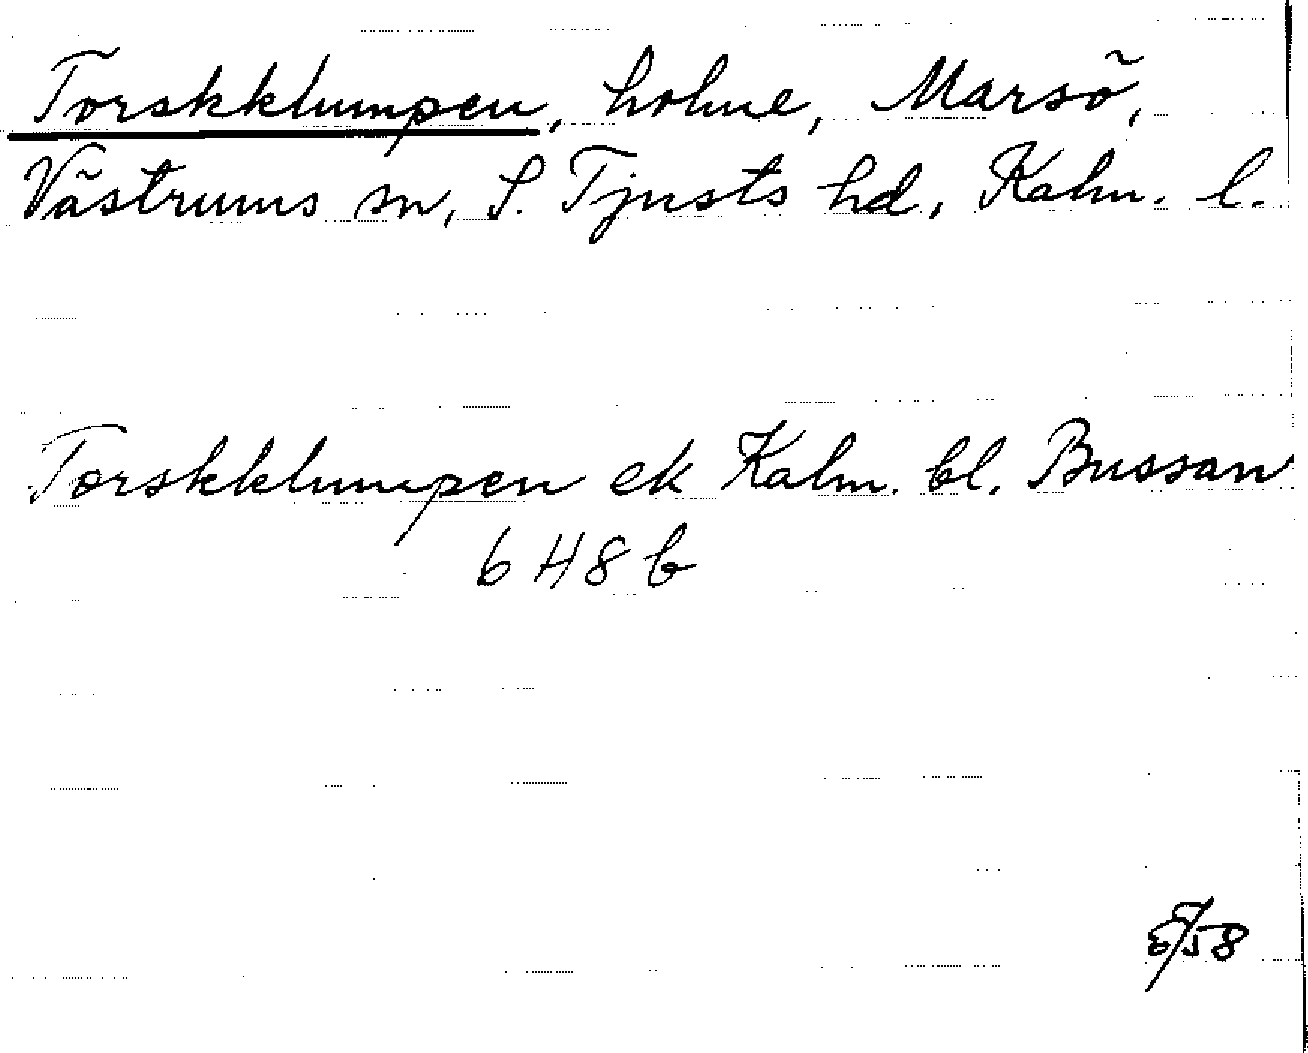 Torskklumpen, holme, Marsö,
Västrums sn, S. Tjusts hd, Kalm. l.
Torskklumpen ek Kalm. bl. Bussan
6 H 8 b
/58